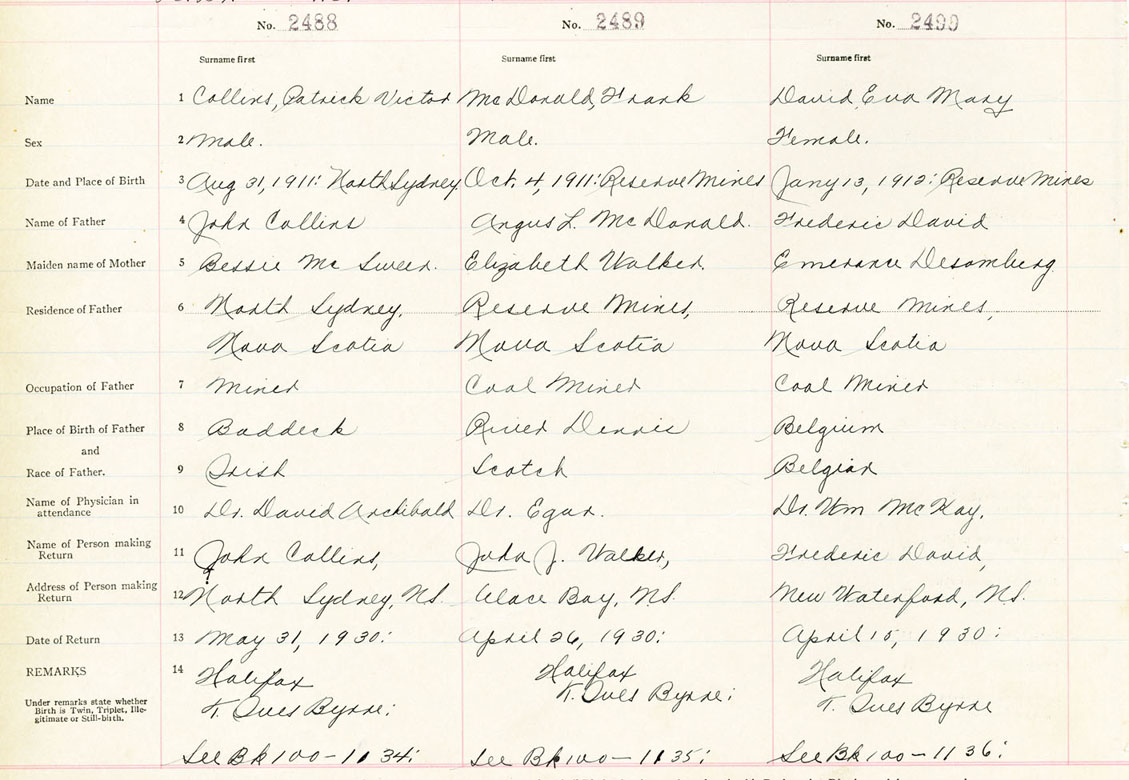 No. 2488 No. 2489 No. 2490
Surname first Surname first Surname first
Name 1 Collins, Patrick Victor McDonald, Frank David, Eva Mary
Sex 2 Male. Male. Female.
Date and Place of Birth 3 Aug 31, 1911: North Sydney Oct. 4, 1911: Reserve Mines Jany 13, 1912: Reserve Mines
Name of Father 4 John Collins Angus L. McDonald. Frederic David
Maiden name of Mother 5 Bessie Mc Sween. Elizabeth Walker. Emerance Desomberg
Residence of Father 6 North Sydney, Reserve Mines, Reserve Mines,
Nova Scotia Nova Scotia Nova Scotia
Occupation of Father 7 Miner Coal Miner Coal Miner
Place of Birth of Father 8 Baddeck River Dennis Belgium
and
Race of Father. 9 Irish Scotch Belgian
Name of Physician in attendance 10 Dr. David Archibald Dr. Egan. Dr. Wm McKay.
Name of Person making Return 11 John Collins, John J. Walker, Frederic David,
Address of Person making Return 12 North Sydney, N.S. Glace Bay, N.S. New Waterford, N.S.
Date of Return 13 May 31, 1930: April 26, 1930: April 15, 1930:
REMARKS 14 Halifax Halifax Halifax
Under remarks state whether Birth is Twin, Triplet, Ille-gitimate or Still-birth. T. Ives Byrne: T. Ives Byrne: T. Ives Byrne
See Bk 100-1134: See Bk 100-1135: See Bk 100-1136: